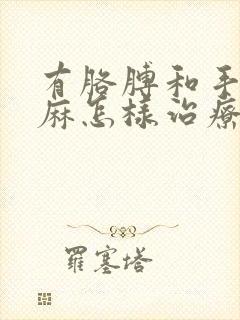 有胳膊和手
麻怎樣治療
羅塞塔